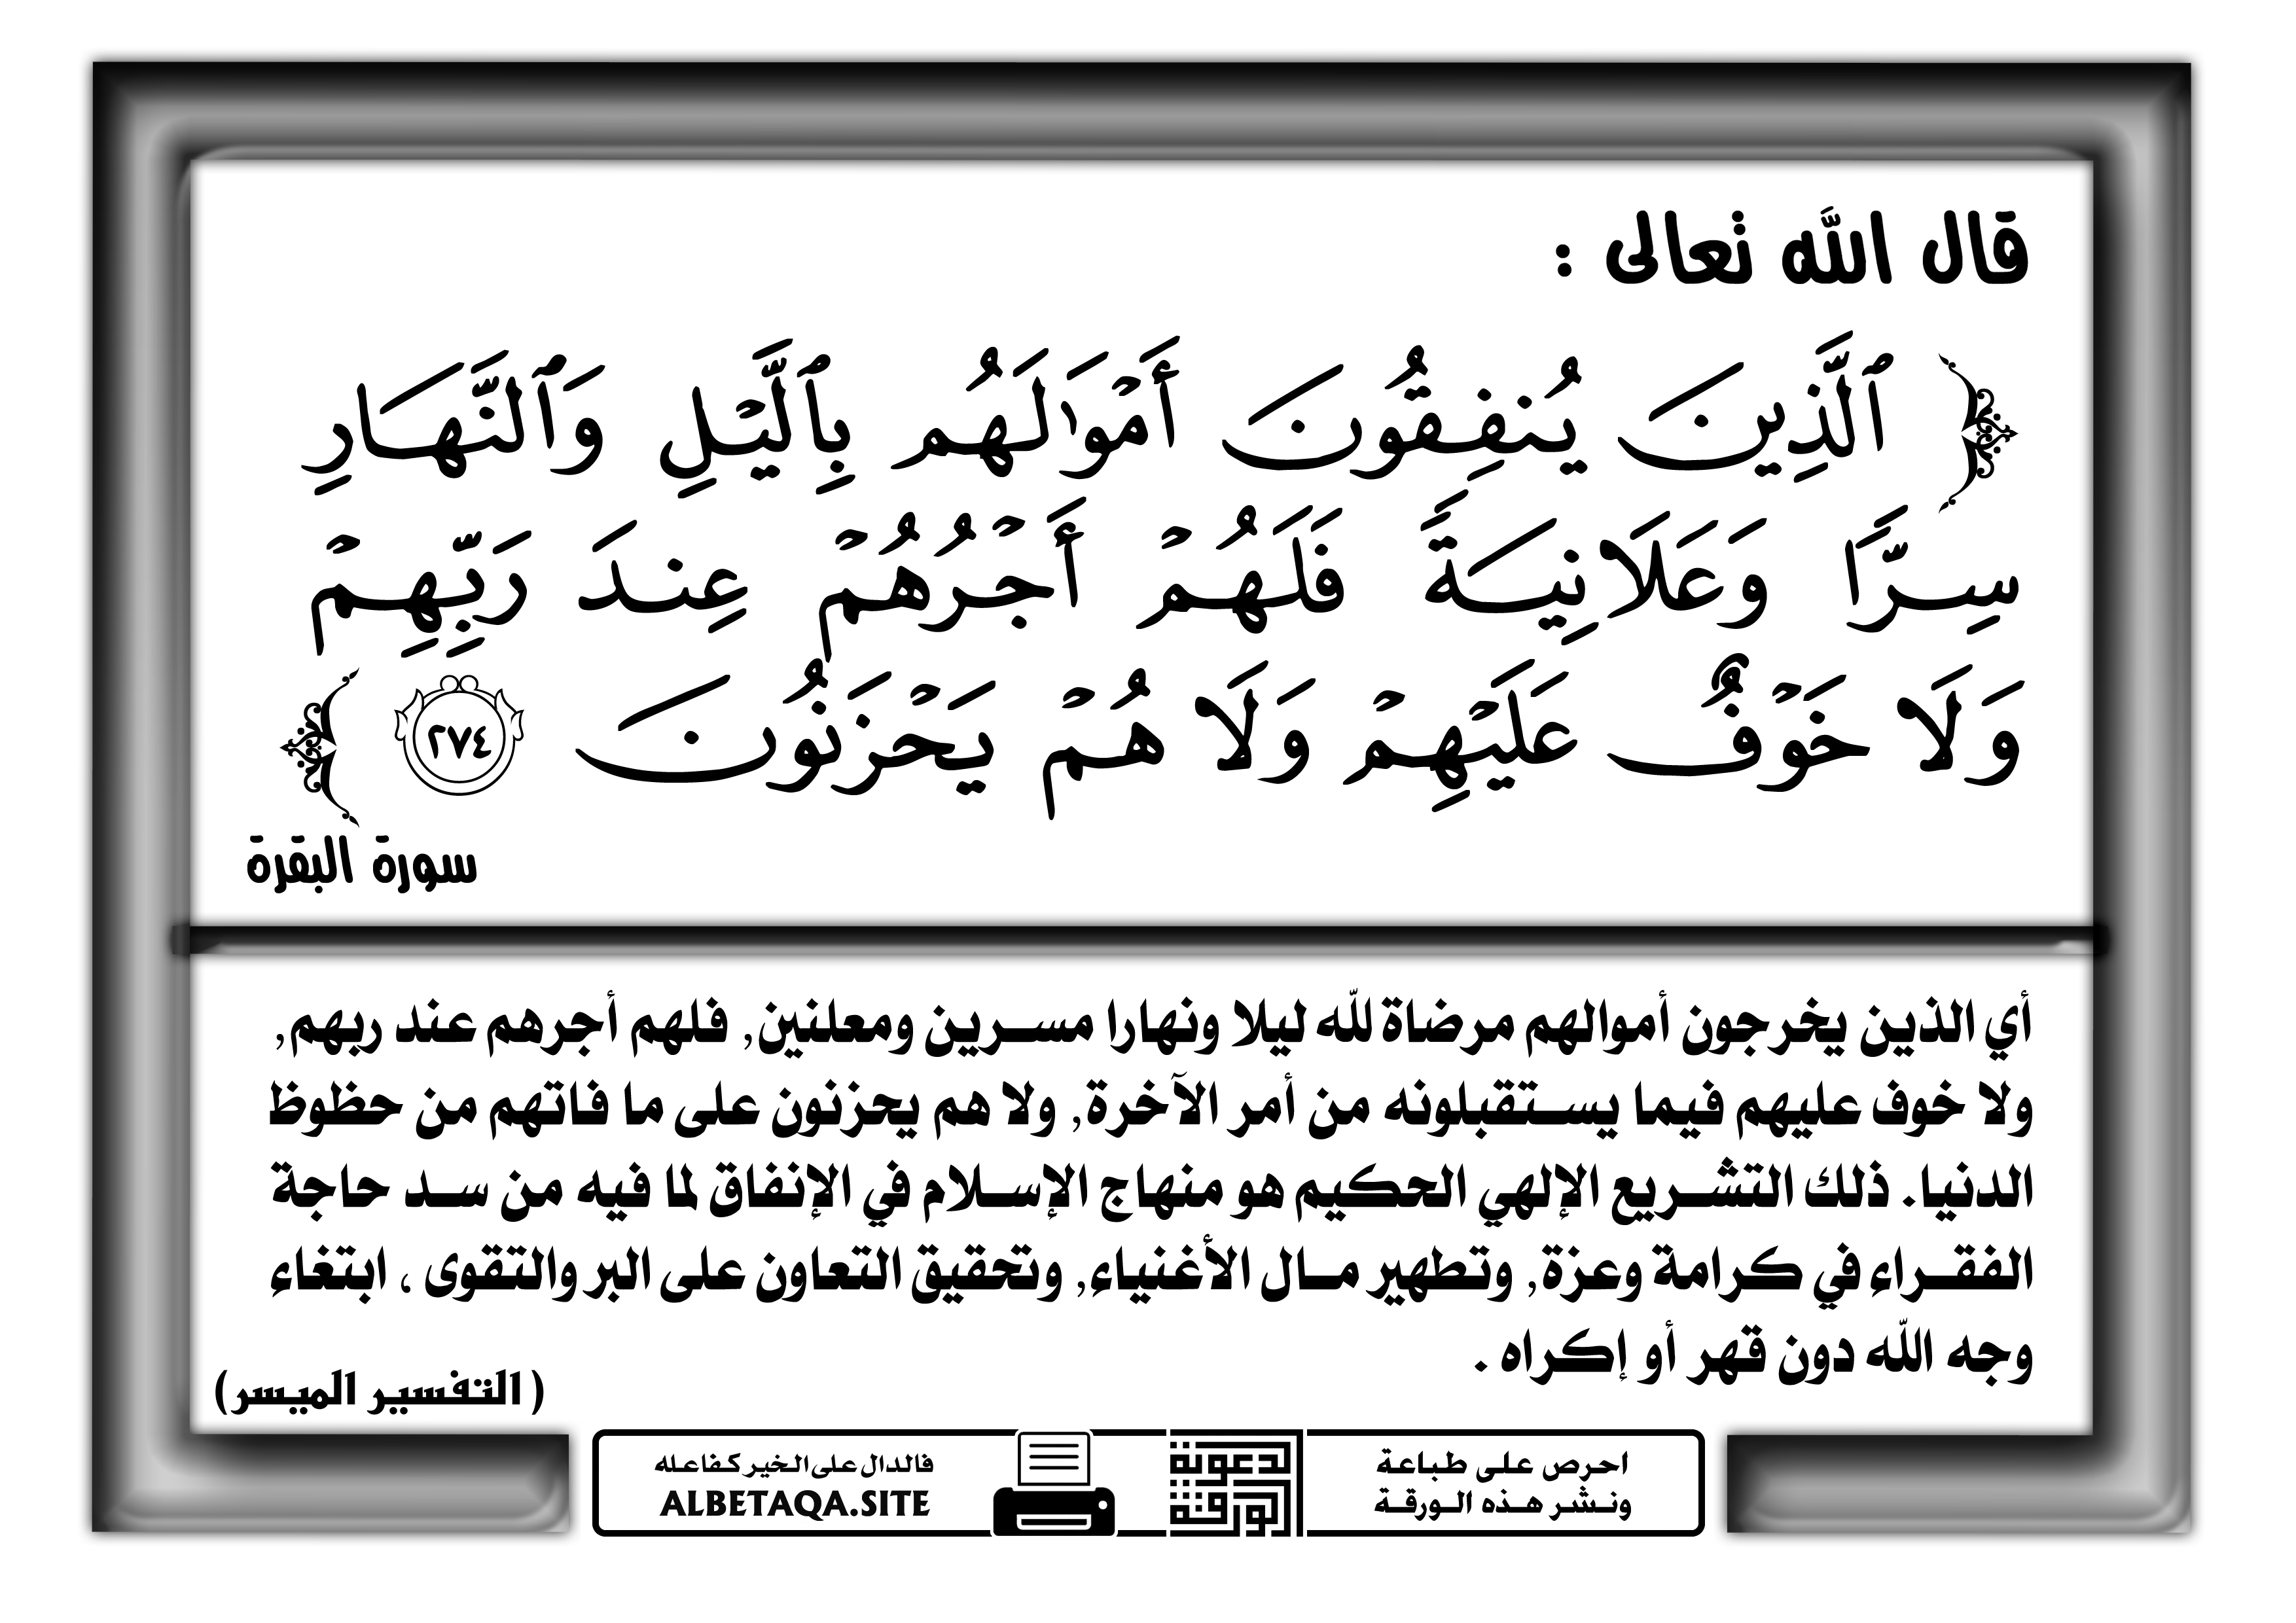 قال الله تعالى :
﴿ ٱلَّذِينَ يُنفِقُونَ أَمْوَٰلَهُم بِٱلَّيْلِ وَٱلنَّهَارِ
سِرًّا وَعَلَانِيَةً فَلَهُمْ أَجْرُهُمْ عِندَ رَبِّهِمْ
وَلَا خَوْفٌ عَلَيْهِمْ وَلَا هُمْ يَحْزَنُونَ ٢٧٤ ﴾
سورة البقرة
أي الذين يخرجون أموالهم مرضاة لله ليلا ونهارا مسرين ومعلنين, فلهم أجرهم عند ربهم,
ولا خوف عليهم فيما يستقبلونه من أمر الآخرة, ولا هم يحزنون على ما فاتهم من حظوظ
الدنيا. ذلك التشريع الإلهي الحكيم هو منهاج الإسلام في الإنفاق لما فيه من سد حاجة
الفقراء في كرامة وعزة, وتطهير مال الأغنياء, وتحقيق التعاون على البر والتقوى ، ابتغاء
وجه الله دون قهر أو إكراه .
( التفسير الميسر)
احرص على طباعة
ونشر هذه الورقة
الدعوية
الورقة
فالدال على الخير كفاعله
ALBETAQA.SITE